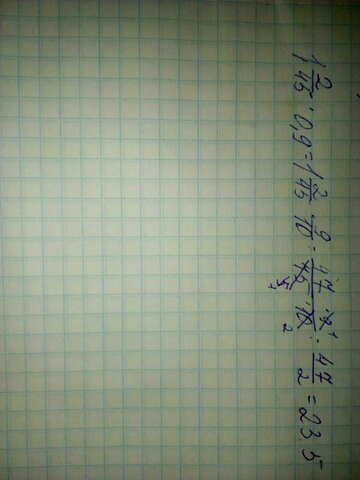 1 2/45 · 0,9 = 1 2/45 · 9/10 = 47 · 9 / 45 · 10 = 47/2 = 23 5